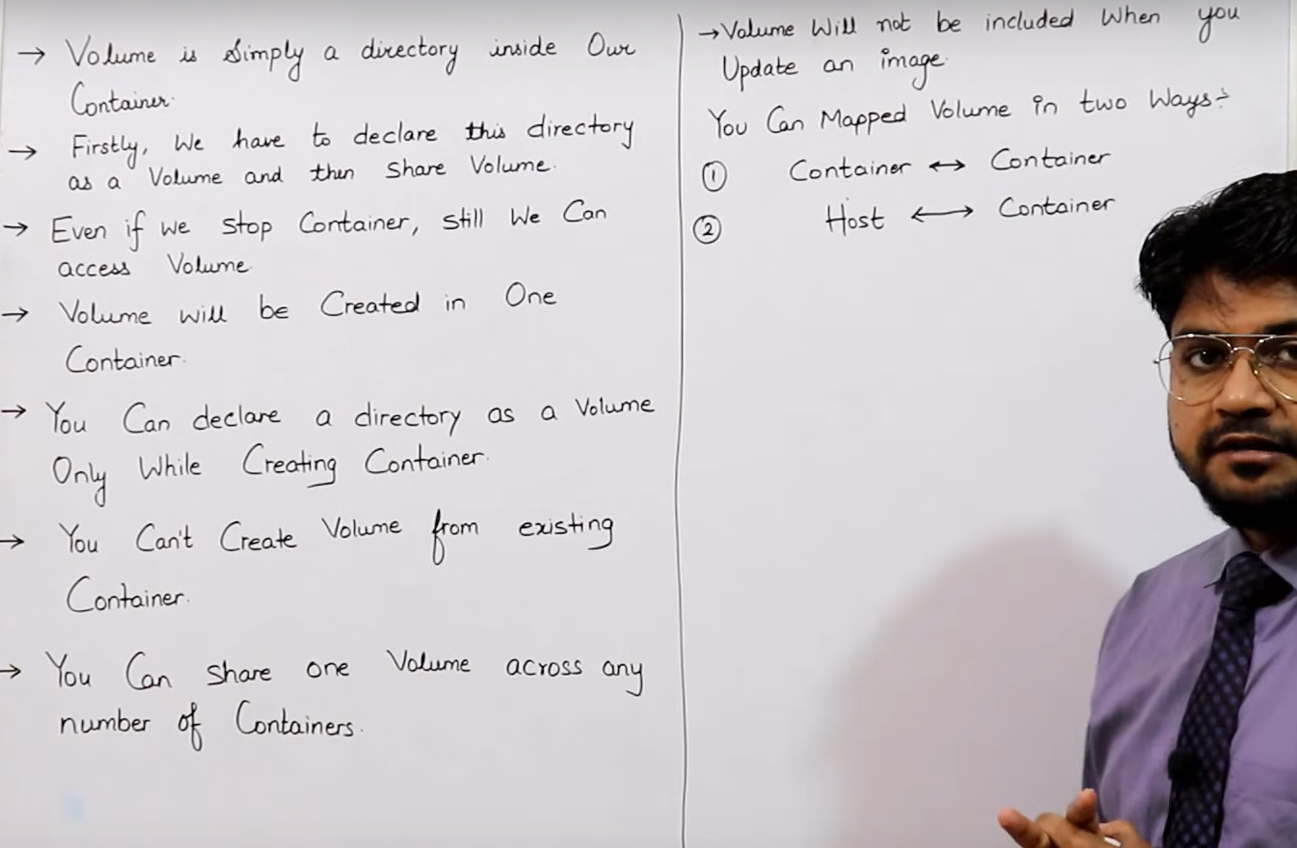 → Volume is Simply a directory inside Our
Container.
→ Firstly, We have to declare this directory
as a Volume and then Share Volume.
→ Even if we stop Container, still We Can
access Volume.
→ Volume will be Created in One
Container.
→ You Can declare a directory as a Volume
Only While Creating Container.
→ You Can't Create Volume from existing
Container.
→ You Can Share one Volume across any
number of Containers.
→ Volume Will not be included When you
Update an image.
You Can Mapped Volume in two Ways:-
① Container ↔ Container
② Host ↔ Container